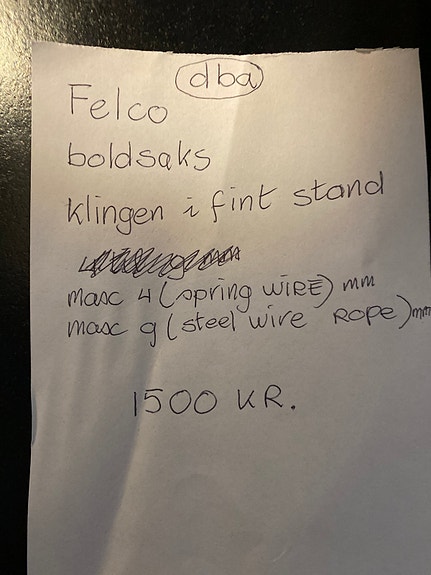 dba
Felco
boldsaks
klingen i fint stand
max 4 (spring WIRE) mm
max 9 (steel wire ROPE) mm
1500 KR.